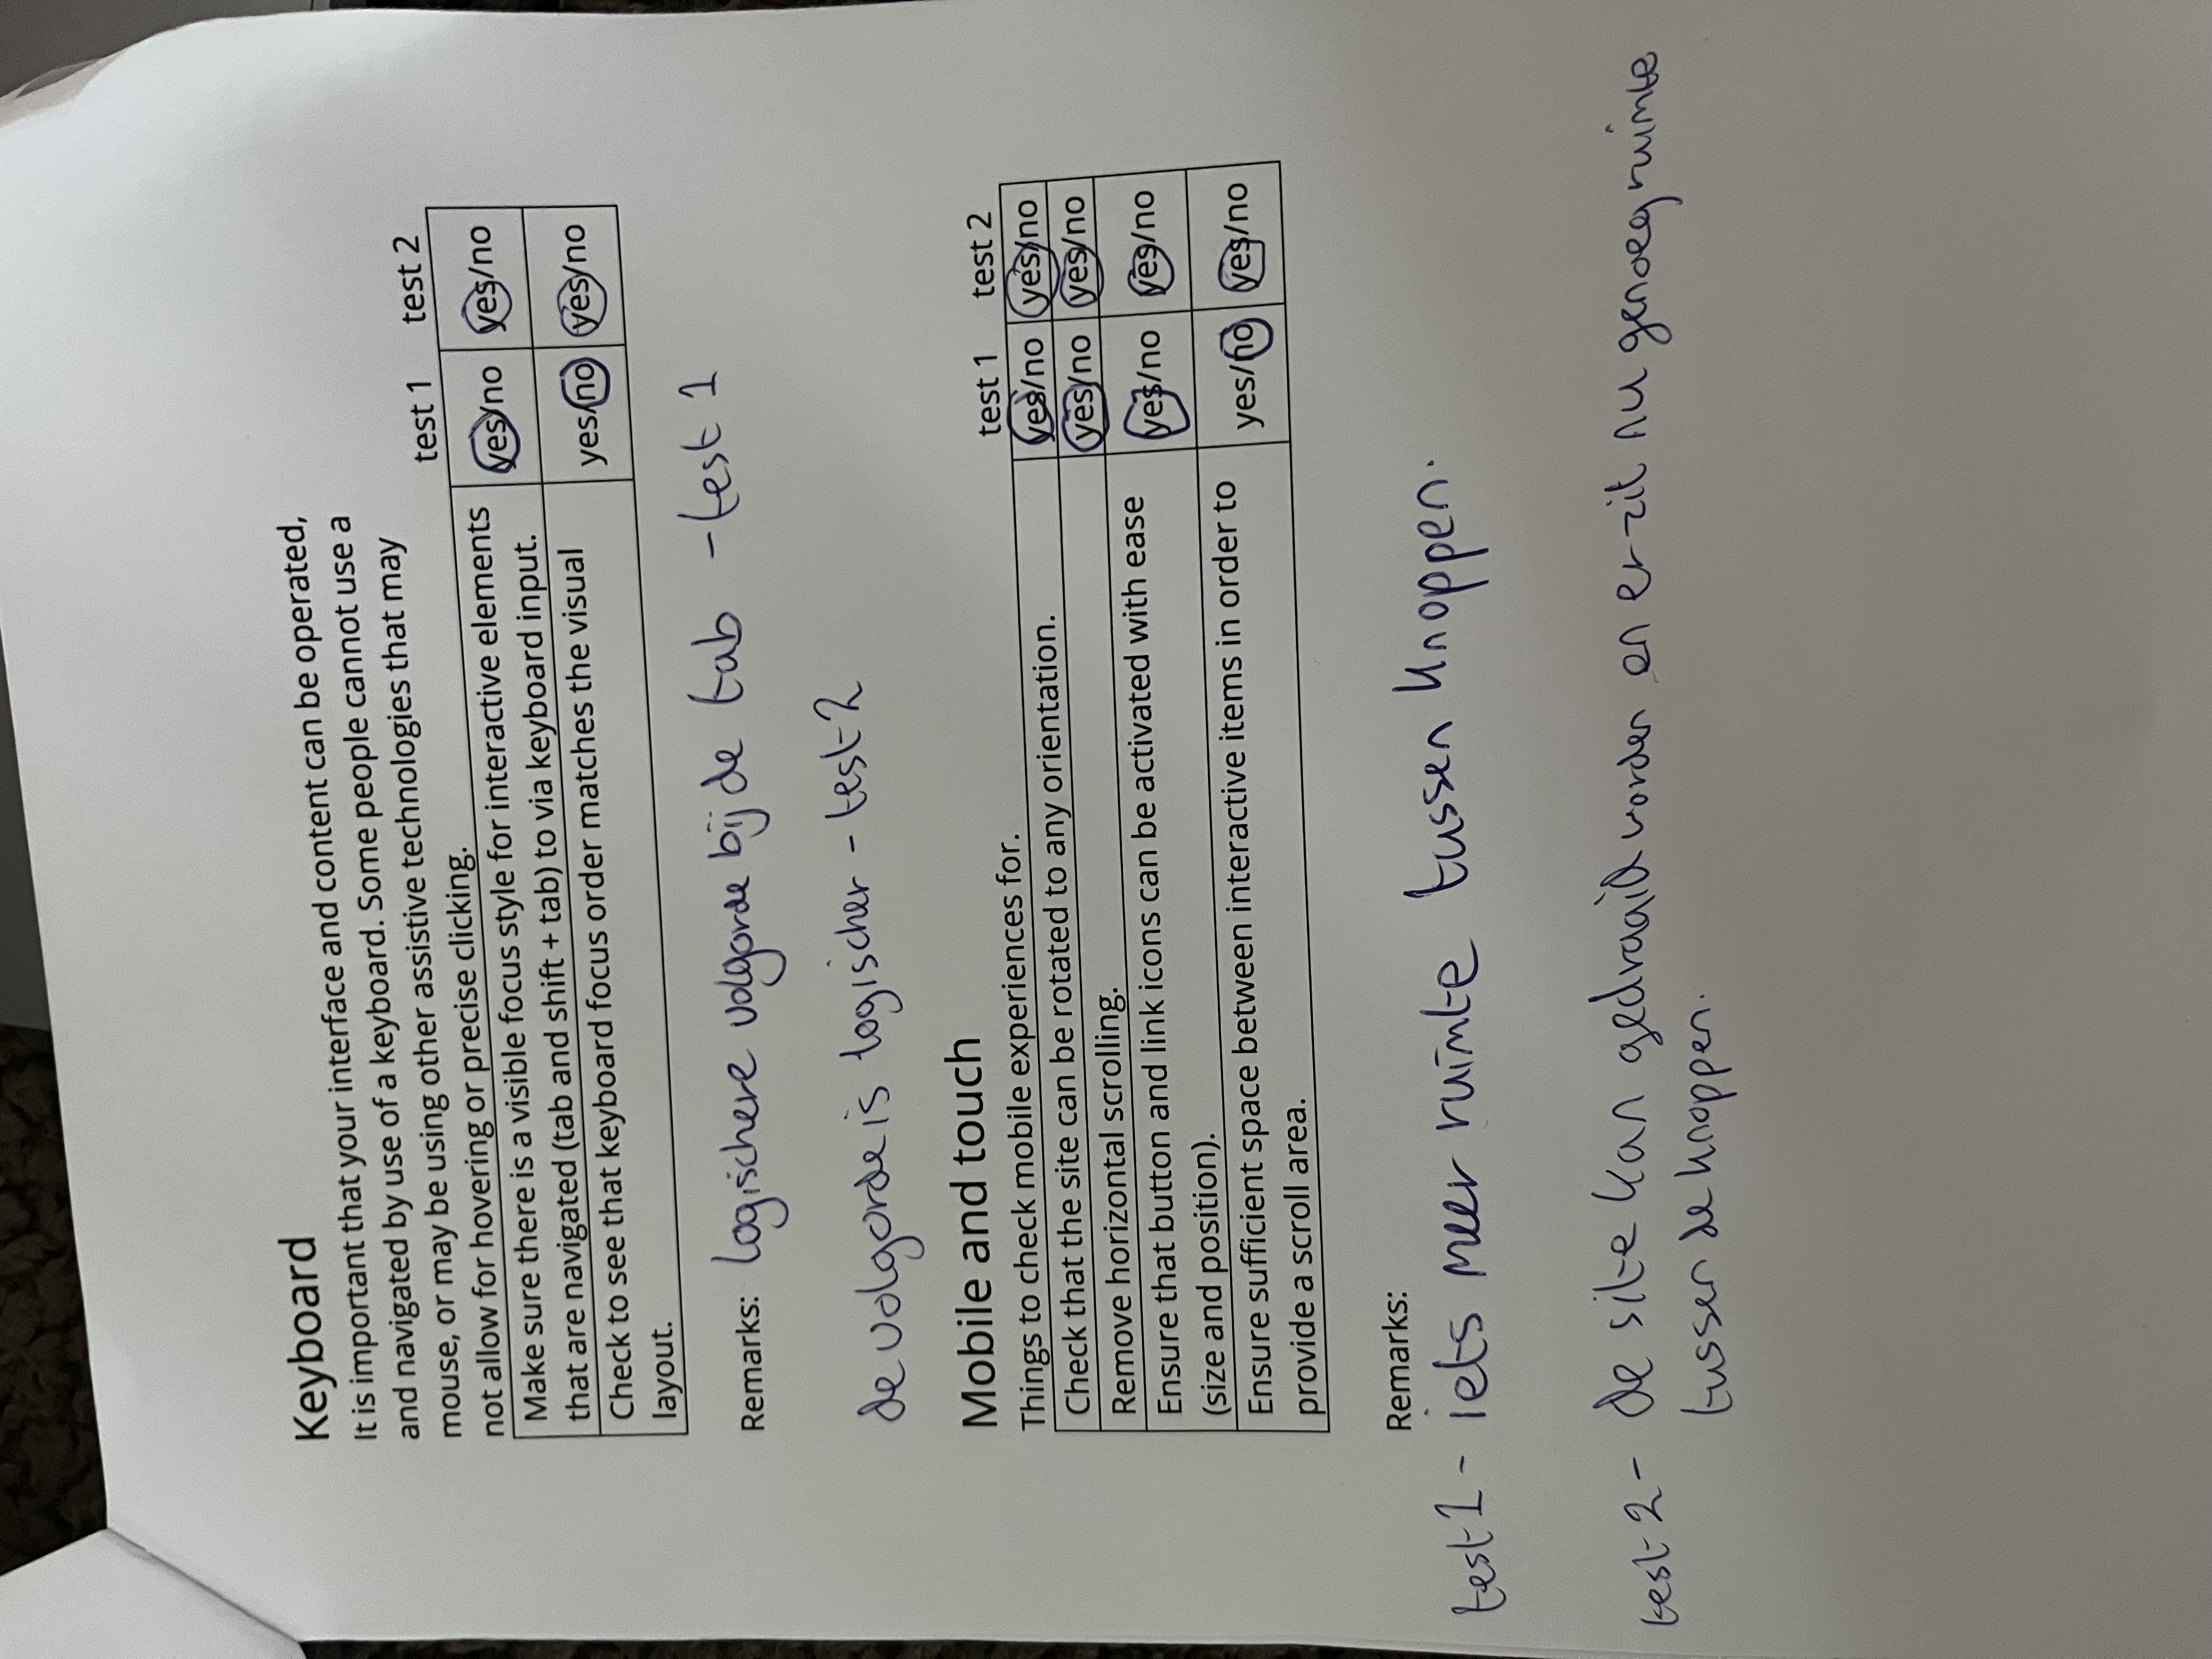 Keyboard
It is important that your interface and content can be operated,
and navigated by use of a keyboard. Some people cannot use a
mouse, or may be using other assistive technologies that may
not allow for hovering or precise clicking.
test 1 test 2
Make sure there is a visible focus style for interactive elements
that are navigated (tab and shift + tab) to via keyboard input.
yes/no yes/no
Check to see that keyboard focus order matches the visual
layout.
yes/no yes/no
Remarks: logischere volgorde bij de tab - test 1
de volgorde is logischer - test 2
Mobile and touch
Things to check mobile experiences for.
test 1 test 2
Check that the site can be rotated to any orientation. yes/no yes/no
Remove horizontal scrolling. yes/no yes/no
Ensure that button and link icons can be activated with ease
(size and position).
yes/no yes/no
Ensure sufficient space between interactive items in order to
provide a scroll area.
yes/no yes/no
Remarks:
test 1 - iets meer ruimte tussen knoppen.
test 2 - de site kan gedraaid worden en er zit nu genoeg ruimte
tussen de knoppen.